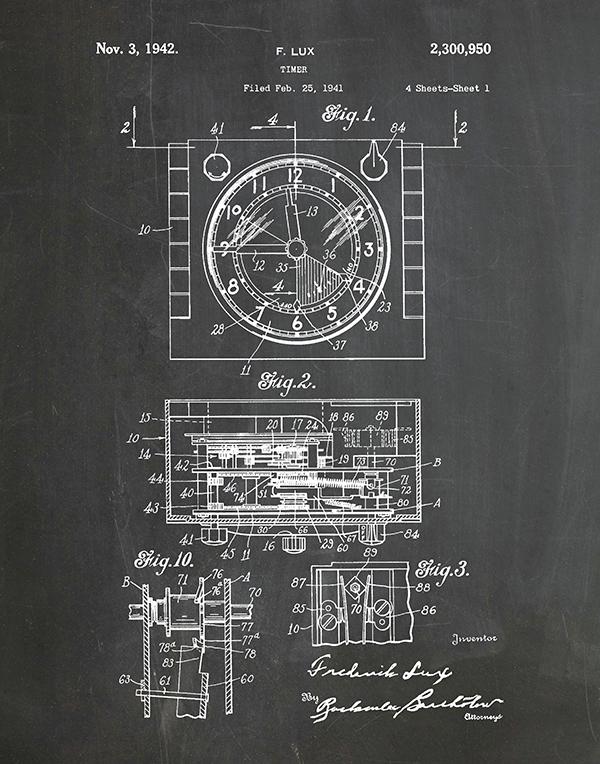 Nov. 3, 1942. F. LUX 2,300,950
TIMER
Filed Feb. 25, 1941 4 Sheets-Sheet 1
Fig. 1.
2 41 4 84 2
12 1 2 3 4 5 6 7 8 9 10 11
10 13 12 35 36
4 28 11 23 38 37
Fig. 2.
15 10 14 42 44 40 43
20 17 24 18 86 89 85
19 73 70 B 71 72 A 80
46 74 51
41 45 11 16 30 66 29 60 67 84
Fig. 10.
B 71 76 76ª A 70
77 77ª 78ª 78 83
63 61 60
Fig. 3.
89
87 88
85 70 86
10
Inventor
Frederick Lux
By
Attorneys